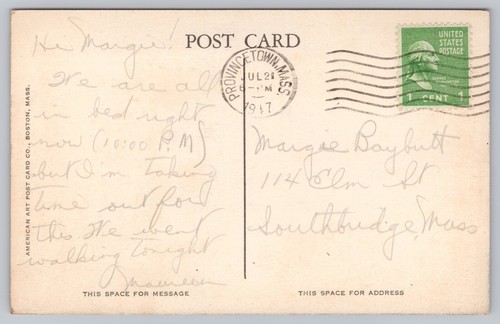 POST CARD
UNITED STATES
POSTAGE
1 CENT
PROVINCETOWN, MASS.
JUL 21
6-PM
1947
Hi Margie!
We are all
in bed right
now (10:00 P.M)
but I'm taking
time out for
this. We went
walking tonight
Maureen
Margie Baybutt
114 Elm St
Southbridge, Mass
AMERICAN ART POST CARD CO., BOSTON, MASS.
THIS SPACE FOR MESSAGE
THIS SPACE FOR ADDRESS